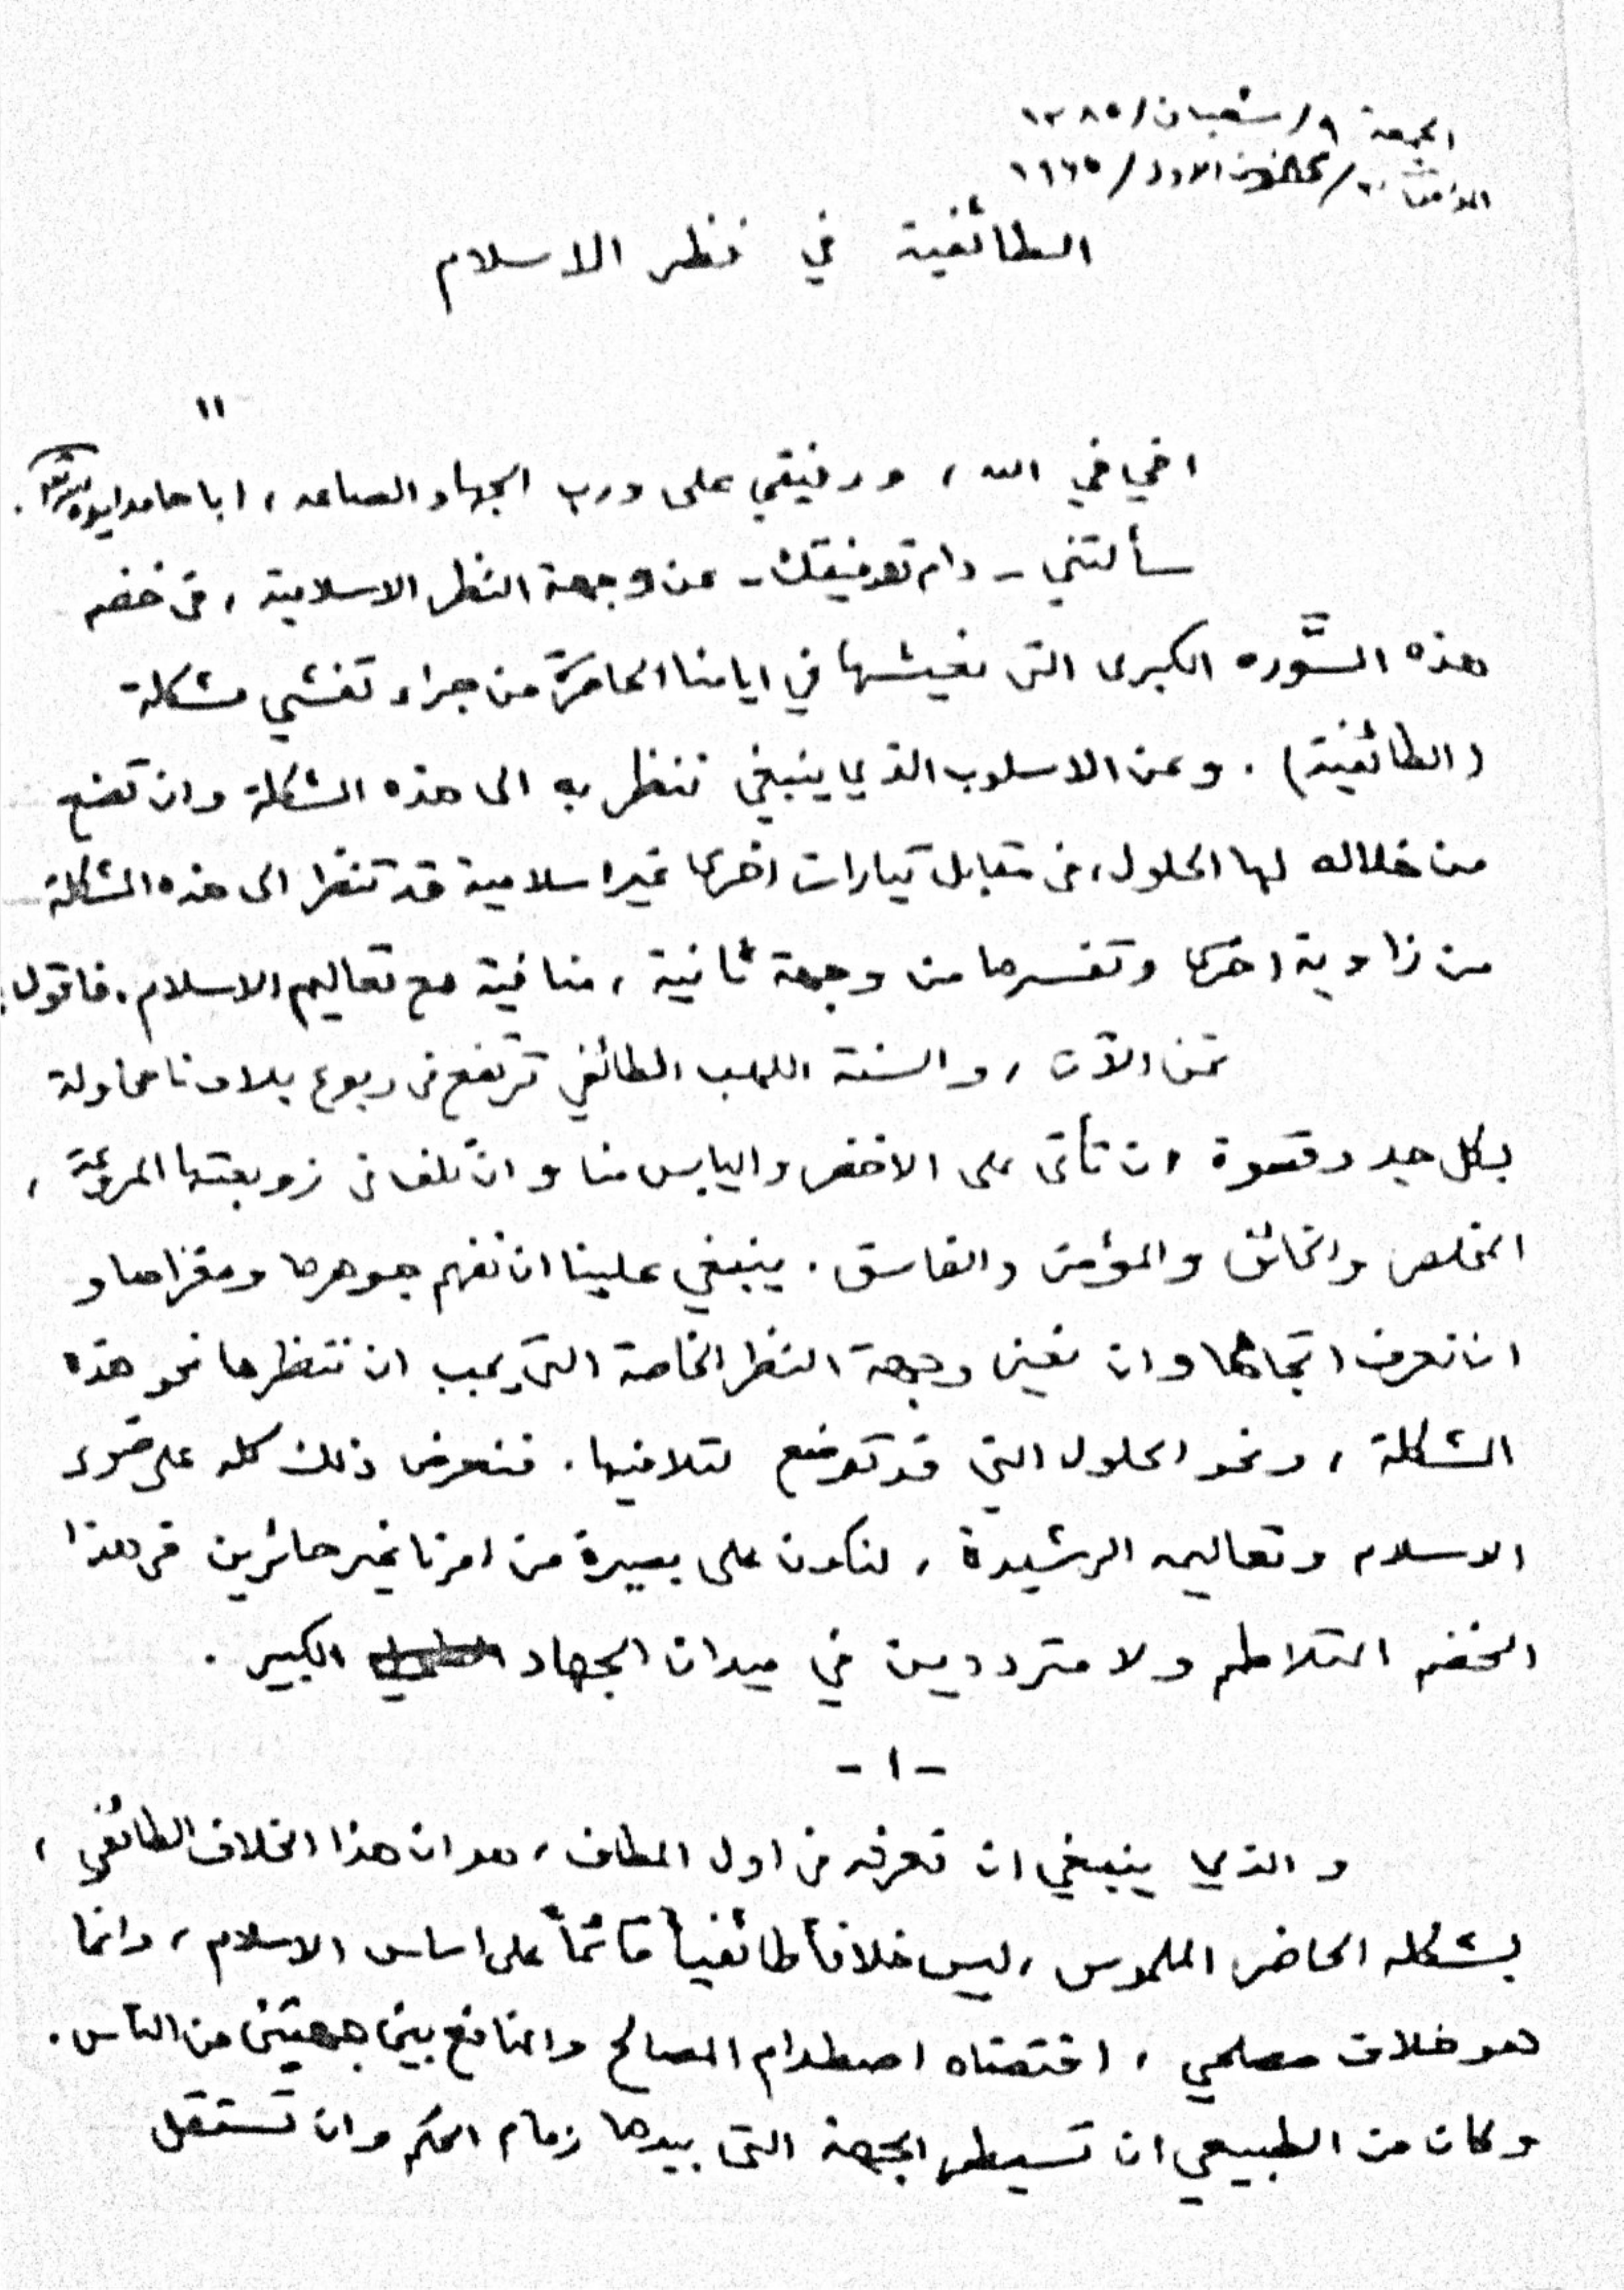 الجمعة ٩/شعبان/١٣٨٥
الاول/١٩٦٥
الطائفية في نظر الاسلام
"
اخي في الله، ورفيقي على درب الجهاد الصاعد، ابا حامد ايده الله.
سألتني - دام توفيقك - عن وجهة النظر الاسلامية، في خضم
هذه الثورة الكبرى التي نعيشها في ايامنا الحاضرة من جراء تفشي مشكلة
(الطائفية). وعن الاسلوب الذي ينبغي ننظر به الى هذه المشكلة وان تضع
من خلاله لها الحلول، في مقابل تيارات اخرى غير اسلامية قد تنظر الى هذه المشكلة
من زاوية اخرى وتفسرها من وجهة ثانية، منافية مع تعاليم الاسلام. فاقول:
نحن الآن، والسنة اللهب الطائفي ترتفع في ربوع بلادنا محاولة
بكل جد وقسوة ان تأتي على الاخضر واليابس منا وان تلف في زوبعتها المروعة،
المخلص والخائن والمؤمن والفاسق. ينبغي علينا ان نفهم جوهرها ومغزاها و
ان نعرف اتجاهها وان نعين وجهة النظر الخاصة التي يجب ان ننظرها نحو هذه
المشكلة، ونحو الحلول التي قد توضع لتلافيها. فنعرض ذلك كله على ضوء
الاسلام وتعاليمه الرشيدة، لنكون على بصيرة من امرنا غير حائرين في هذا
الخضم المتلاطم ولا مترددين في ميدان الجهاد الكبير.
- ١ -
و الذي ينبغي ان نعرفه في اول المطاف، هو ان هذا الخلاف الطائفي،
بشكله الحاضر الملموس، ليس خلافاً طائفياً قائماً على اساس الاسلام، وانما
هو خلاف مصلحي، اقتضاه اصطدام المصالح والمنافع بين جهتين من الناس.
وكان من الطبيعي ان تسيطر الجهة التي بيدها زمام الحكم وان تستقل